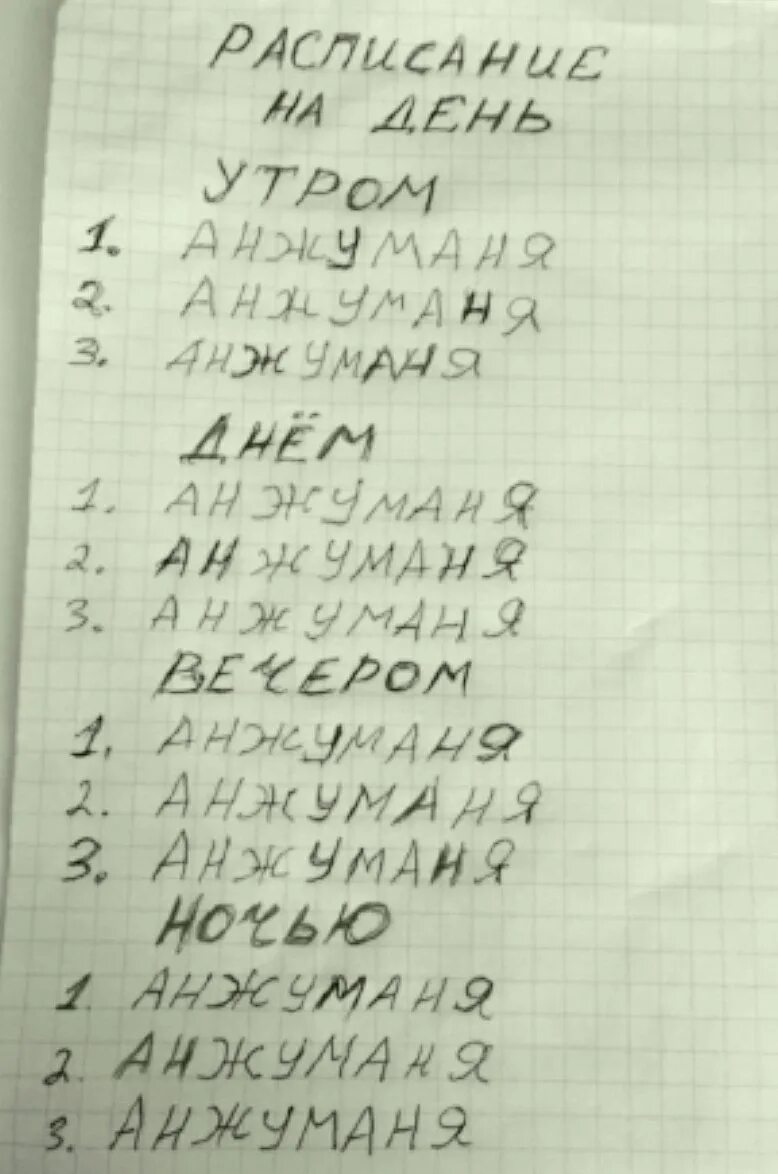 РАСПИСАНИЕ
НА ДЕНЬ
УТРОМ
1. АНЖУМАНЯ
2. АНЖУМАНЯ
3. АНЖУМАНЯ
ДНЁМ
1. АНЖУМАНЯ
2. АНЖУМАНЯ
3. АНЖУМАНЯ
ВЕЧЕРОМ
1. АНЖУМАНЯ
2. АНЖУМАНЯ
3. АНЖУМАНЯ
НОЧЬЮ
1. АНЖУМАНЯ
2. АНЖУМАНЯ
3. АНЖУМАНЯ